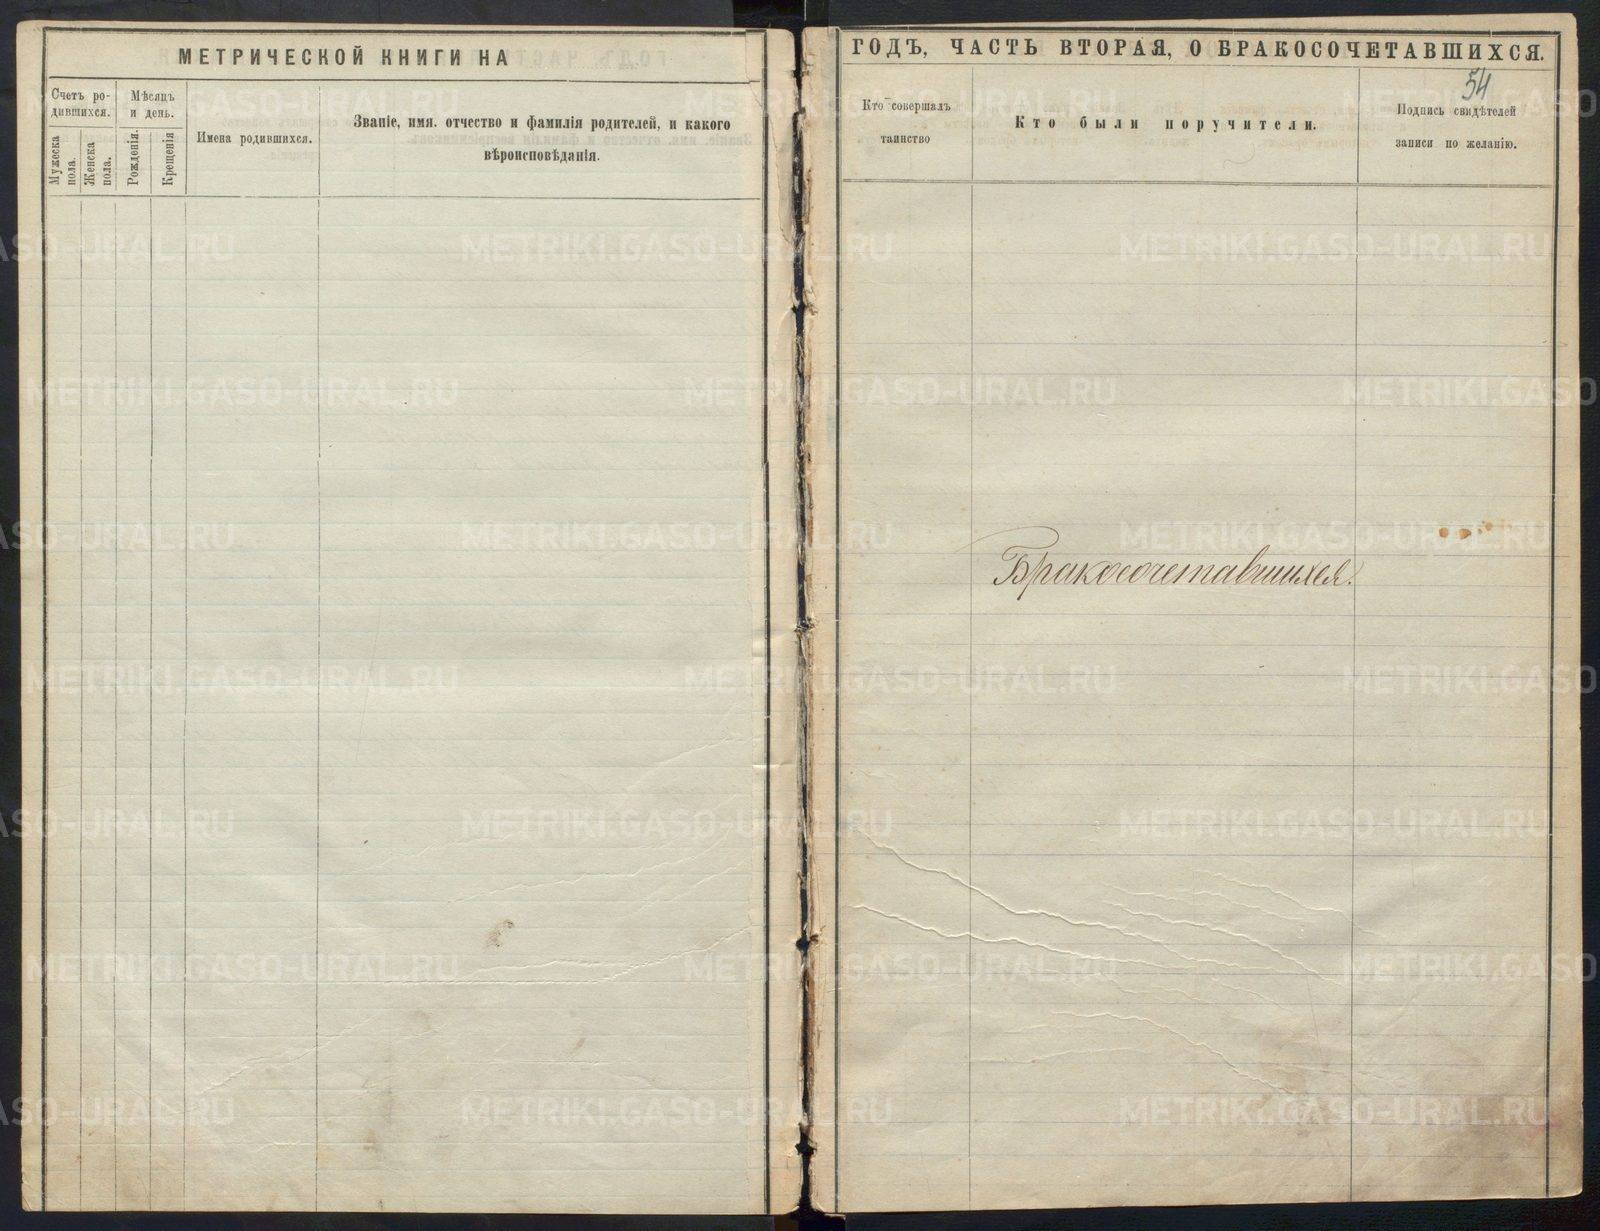 МЕТРИЧЕСКОЙ КНИГИ НА
Счетъ ро-
дившихся.
Мужеска
пола.
Женска
пола.
Мѣсяцъ
и день.
Рожденія.
Крещенія
Имена родившихся.
Званіе, имя. отчество и фамилія родителей, и какого
вѣроисповѣданія.
ГОДЪ, ЧАСТЬ ВТОРАЯ, О БРАКОСОЧЕТАВШИХСЯ.
54
Кто совершалъ
таинство
Кто были поручители.
Подпись свидѣтелей
записи по желанію.
Бракосочетавшихся.
METRIKI.GASO-URAL.RU